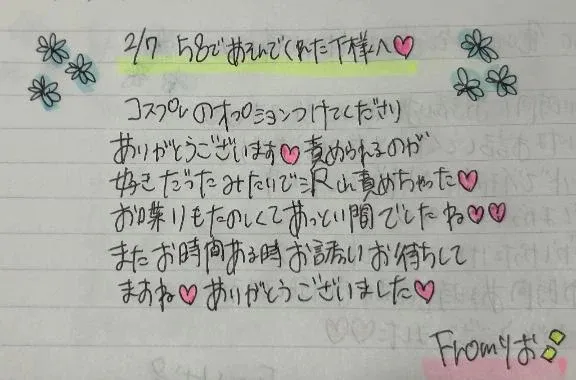 2/7 58であそんでくれたT様へ♡
コスプレのオプションつけてくださり
ありがとうございます♡責められるのが
好きだったみたいで沢山責めちゃった♡
お喋りもたのしくてあっとい間でしたね♡♡
またお時間ある時お誘いお待ちして
ますね♡ありがとうございました♡
Fromりお